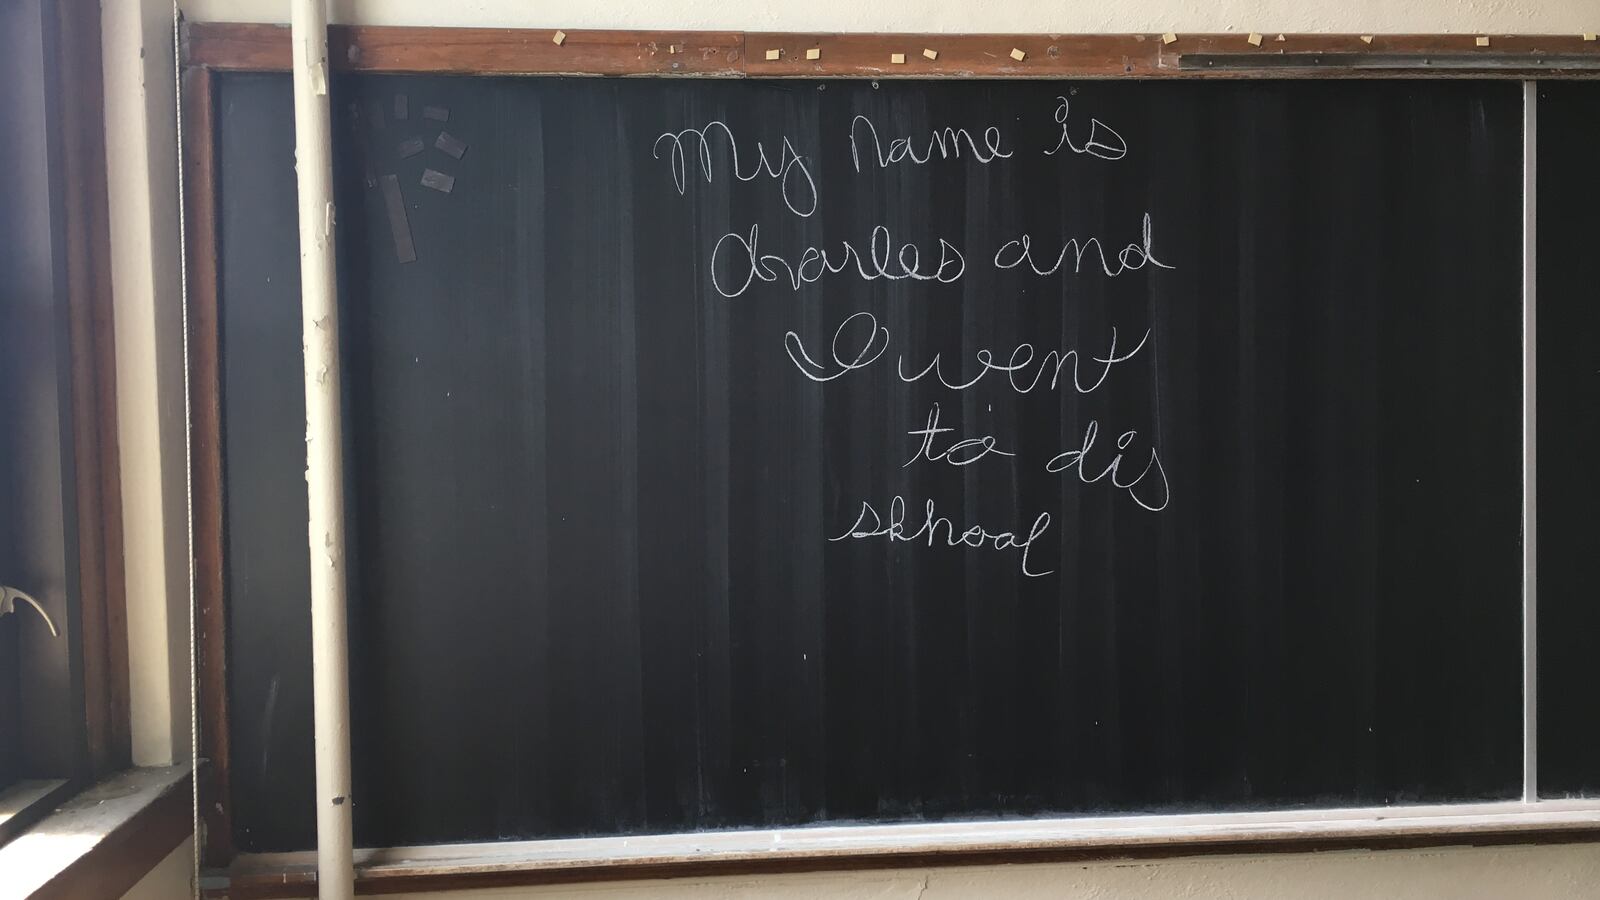 My name is
Charles and
I went
to dis
skhool